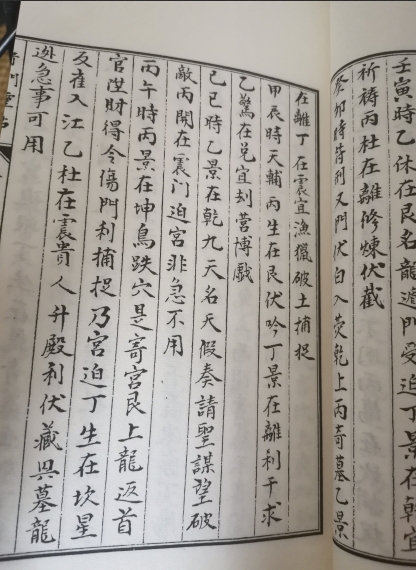 壬寅時乙休在艮名龍遊門受迫丁景在乹宜
祈禱丙杜在離修煉伏截
癸卯時蒔刑又門伏白入熒乾上丙奇墓乙景
在離丁在震宜漁獵破土捕捉
甲辰時天輔丙生在艮伏吟丁景在離利干求
乙驚在兑宜刦营博戲
乙巳時乙景在乾九天名天假奏請聖謀望破
敵丙開在震门迫宮非急不用
丙午時丙景在坤鳥跌穴是寄宮艮上龍返首
官陞財得令傷門利捕捉乃宮迫丁生在坎星
反雀入江乙杜在震貴人升殿利伏藏具墓龍
迯急事可用